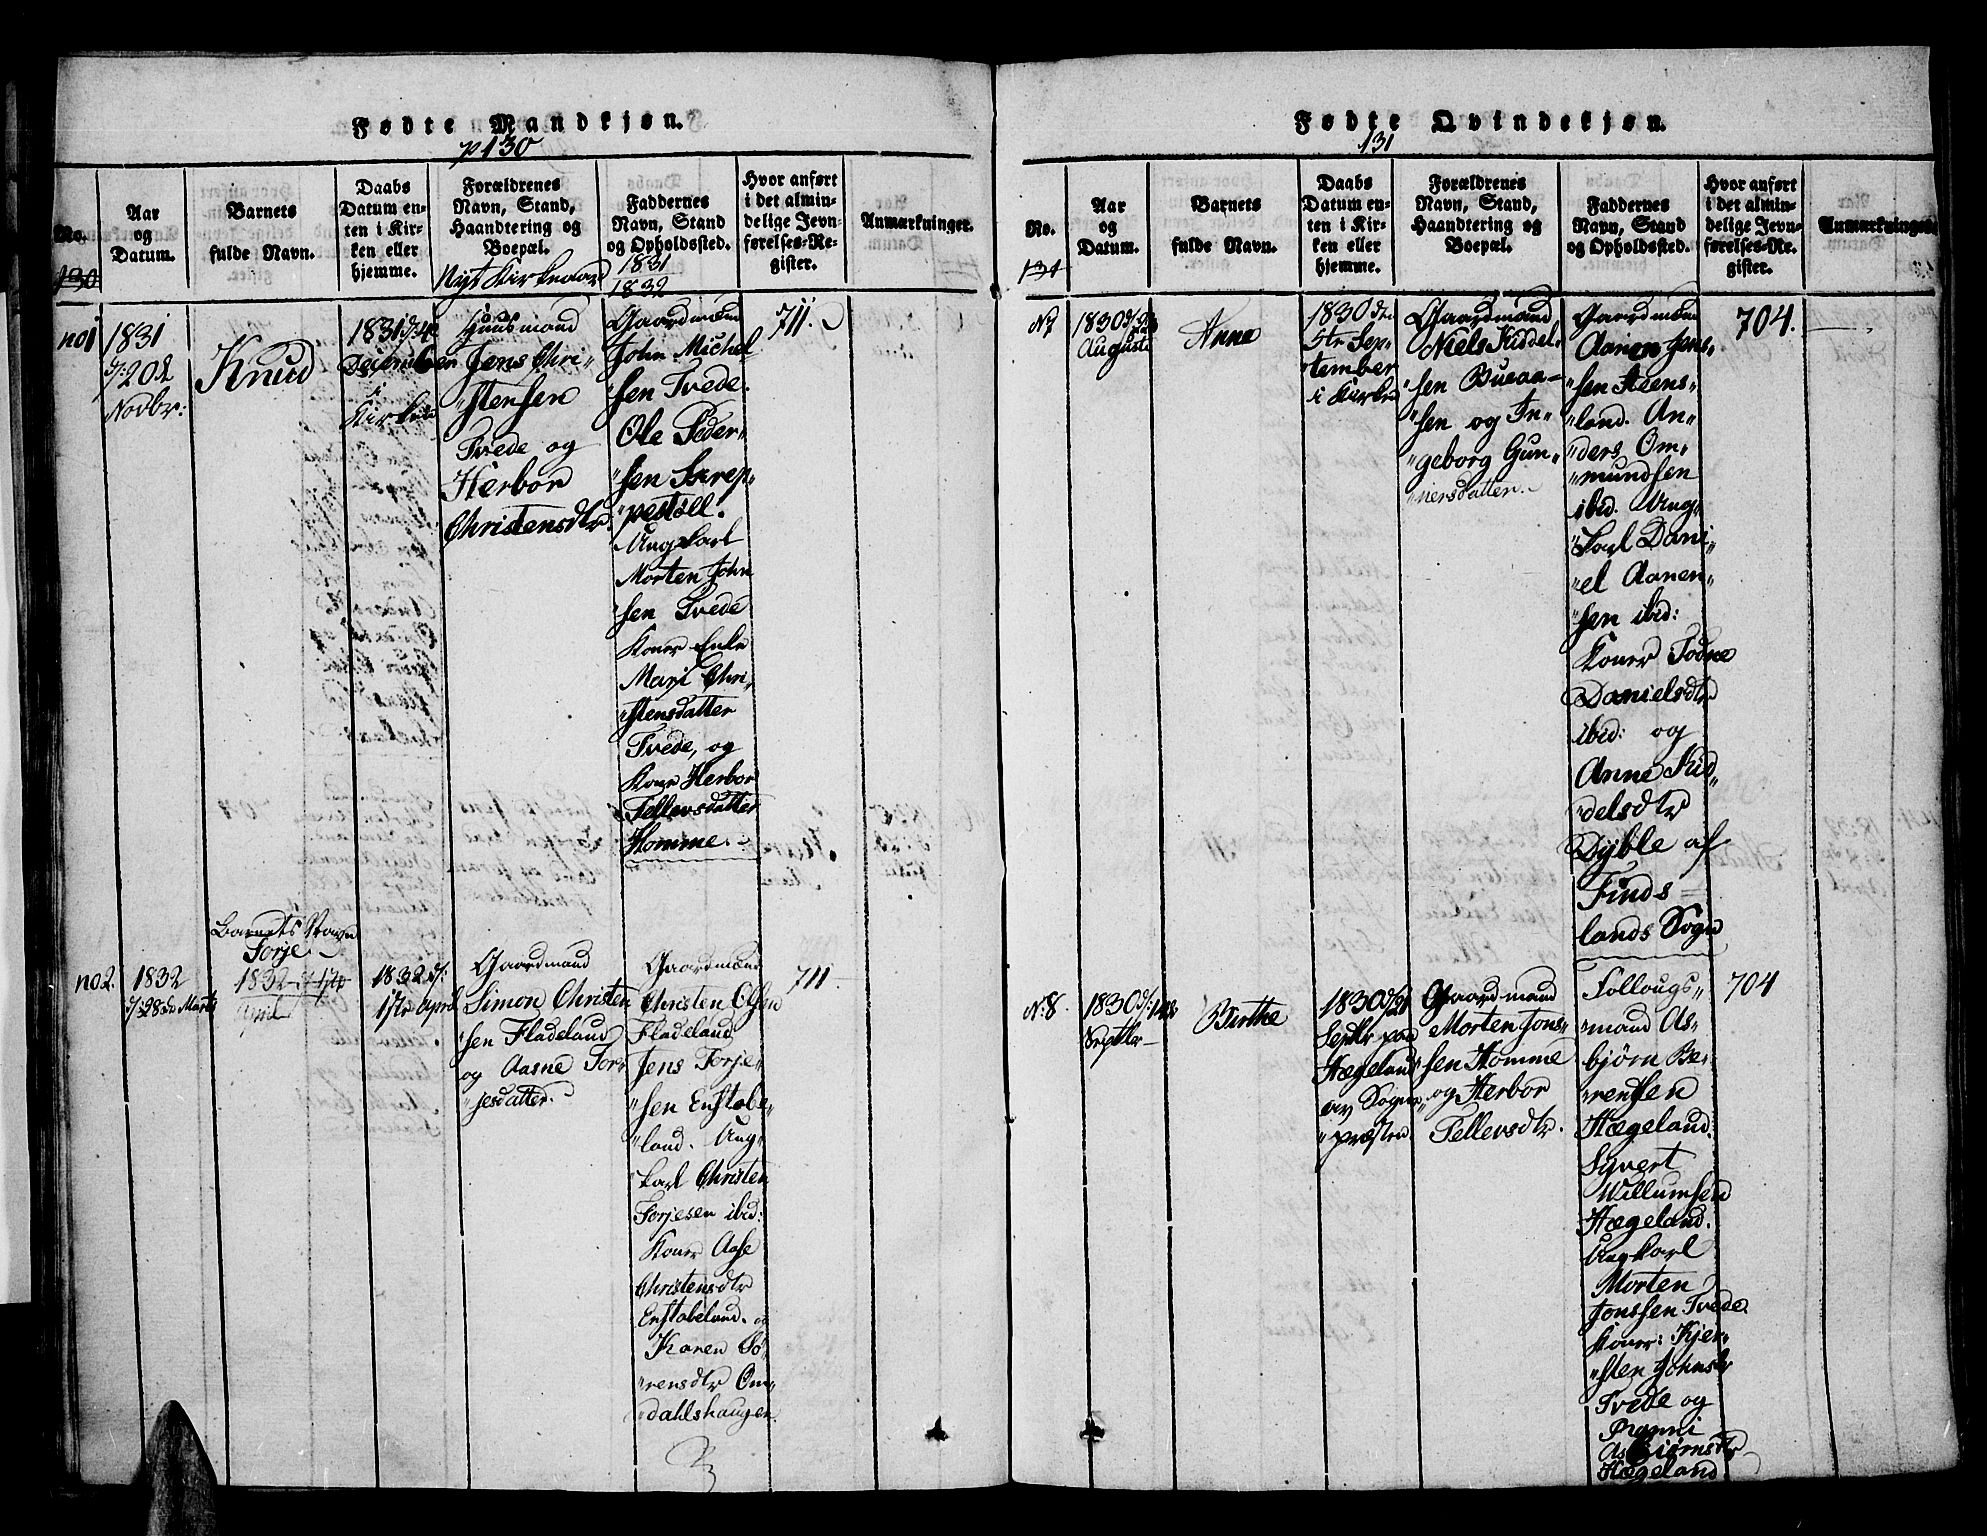 Fødte Mandkjøn.
p 130
No.
Aar
og
Datum.
Barnets
fulde Navn.
Daabs
Datum en-
ten i Kir-
ken eller
hjemme.
Forældrenes
Navn, Stand,
Haandtering og
Boepæl.
Faddernes
Navn, Stand
og Opholdssted.
Hvor anført
i det almin-
delige Jevn-
førelses-Re-
gister.
Anmærkninger.
130
Nyt Kirkeaar
1831
1832
no 1
1831
d: 20de
Novbr:
Knud
1831 d: 4de
December
i
Kirken
Huusmand
Jens Chri-
"stensen
Tvede og
Herbor
Christensdtr.
Gaardmænd
John Michel
"sen Tvede.
Ole Peder-
"sen Skrep-
"pestøll.
Ungkarl
Morten John
"sen Tvede
Koner Enke
Mari Chri-
"stensdatter
Tvede, og
Kone Herbor
Tellevsdatter
Homme.
711.
no 2.
1832
d: 28de Marts
Barnets Navn
Torje
1832 d 1ste
April
1832 d:
1ste April
Gaardmand
Simon Christen
"sen Fladeland
og Aasne Tor-
"jesdatter.
Gaardmænd
Christen Olsen
Fladeland
Jens Torje-
"sen Enstabe-
"land. Ung-
"karl Christen
Torjesen ibid:
Koner Aase
Christensdtr
Enstabeland. og
Karen Sø-
"rensdtr Om-
"dahlshaugen.
711.
Fødte Qvindekjøn.
131
No.
Aar
og
Datum.
Barnets
fulde Navn.
Daabs
Datum en-
ten i Kir-
ken eller
hjemme.
Forældrenes
Navn, Stand,
Haandtering og
Boepæl.
Faddernes
Navn, Stand
og Opholdssted.
Hvor anført
i det almin-
delige Jevn-
førelses-Re-
gister.
Anmærkninger.
131
No 7
1830
August
Anne
1830 den
5te Sep-
"tember
i Kirken
Gaardmand
Niels Kiddel-
"sen Bueaa-
"sen og In-
"geborg Gun-
"nersdatter.
Gaardmænd
Aanen Jens-
"sen Steens-
"land. An-
"ders Om-
"mundsen
ibid. Ung-
"karl Dani-
"el Aanen-
"sen ibid:
Koner Todne
Danielsdtr
ibid: og
Anne Kid-
"delsdtr
Dyble af
Finds-
lands Sogn
704.
No 8.
1830 d: 14de
Septbr
Birthe
1830 d/26
Septbr paa
Hægeland
av Sogne-
"præsten
Gaardmand
Morten Jons-
"sen Homme
og Herbor
Tellevsdtr.
Follougs-
"mand As-
bjørn Be-
"rentsen
Hægeland.
Syvert
Willumsen
Hægeland.
Ungkarl
Morten
Jonssen Tvede
Koner: Kjer-
"sten Johnsdtr
Tvede og
Asbiørnsdtr
Hægeland
704